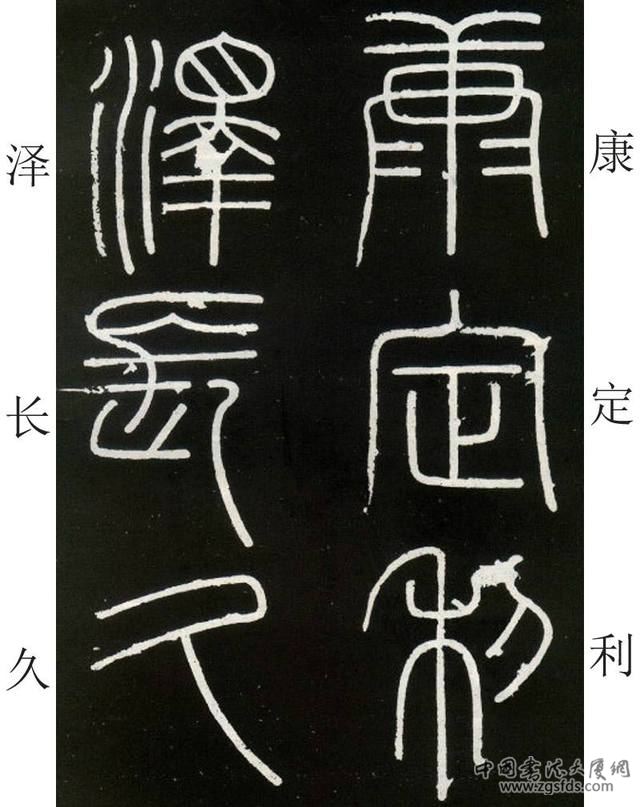 康定利
泽长久
康定利
澤長久
中国书法大厦网
www.zgsfds.com